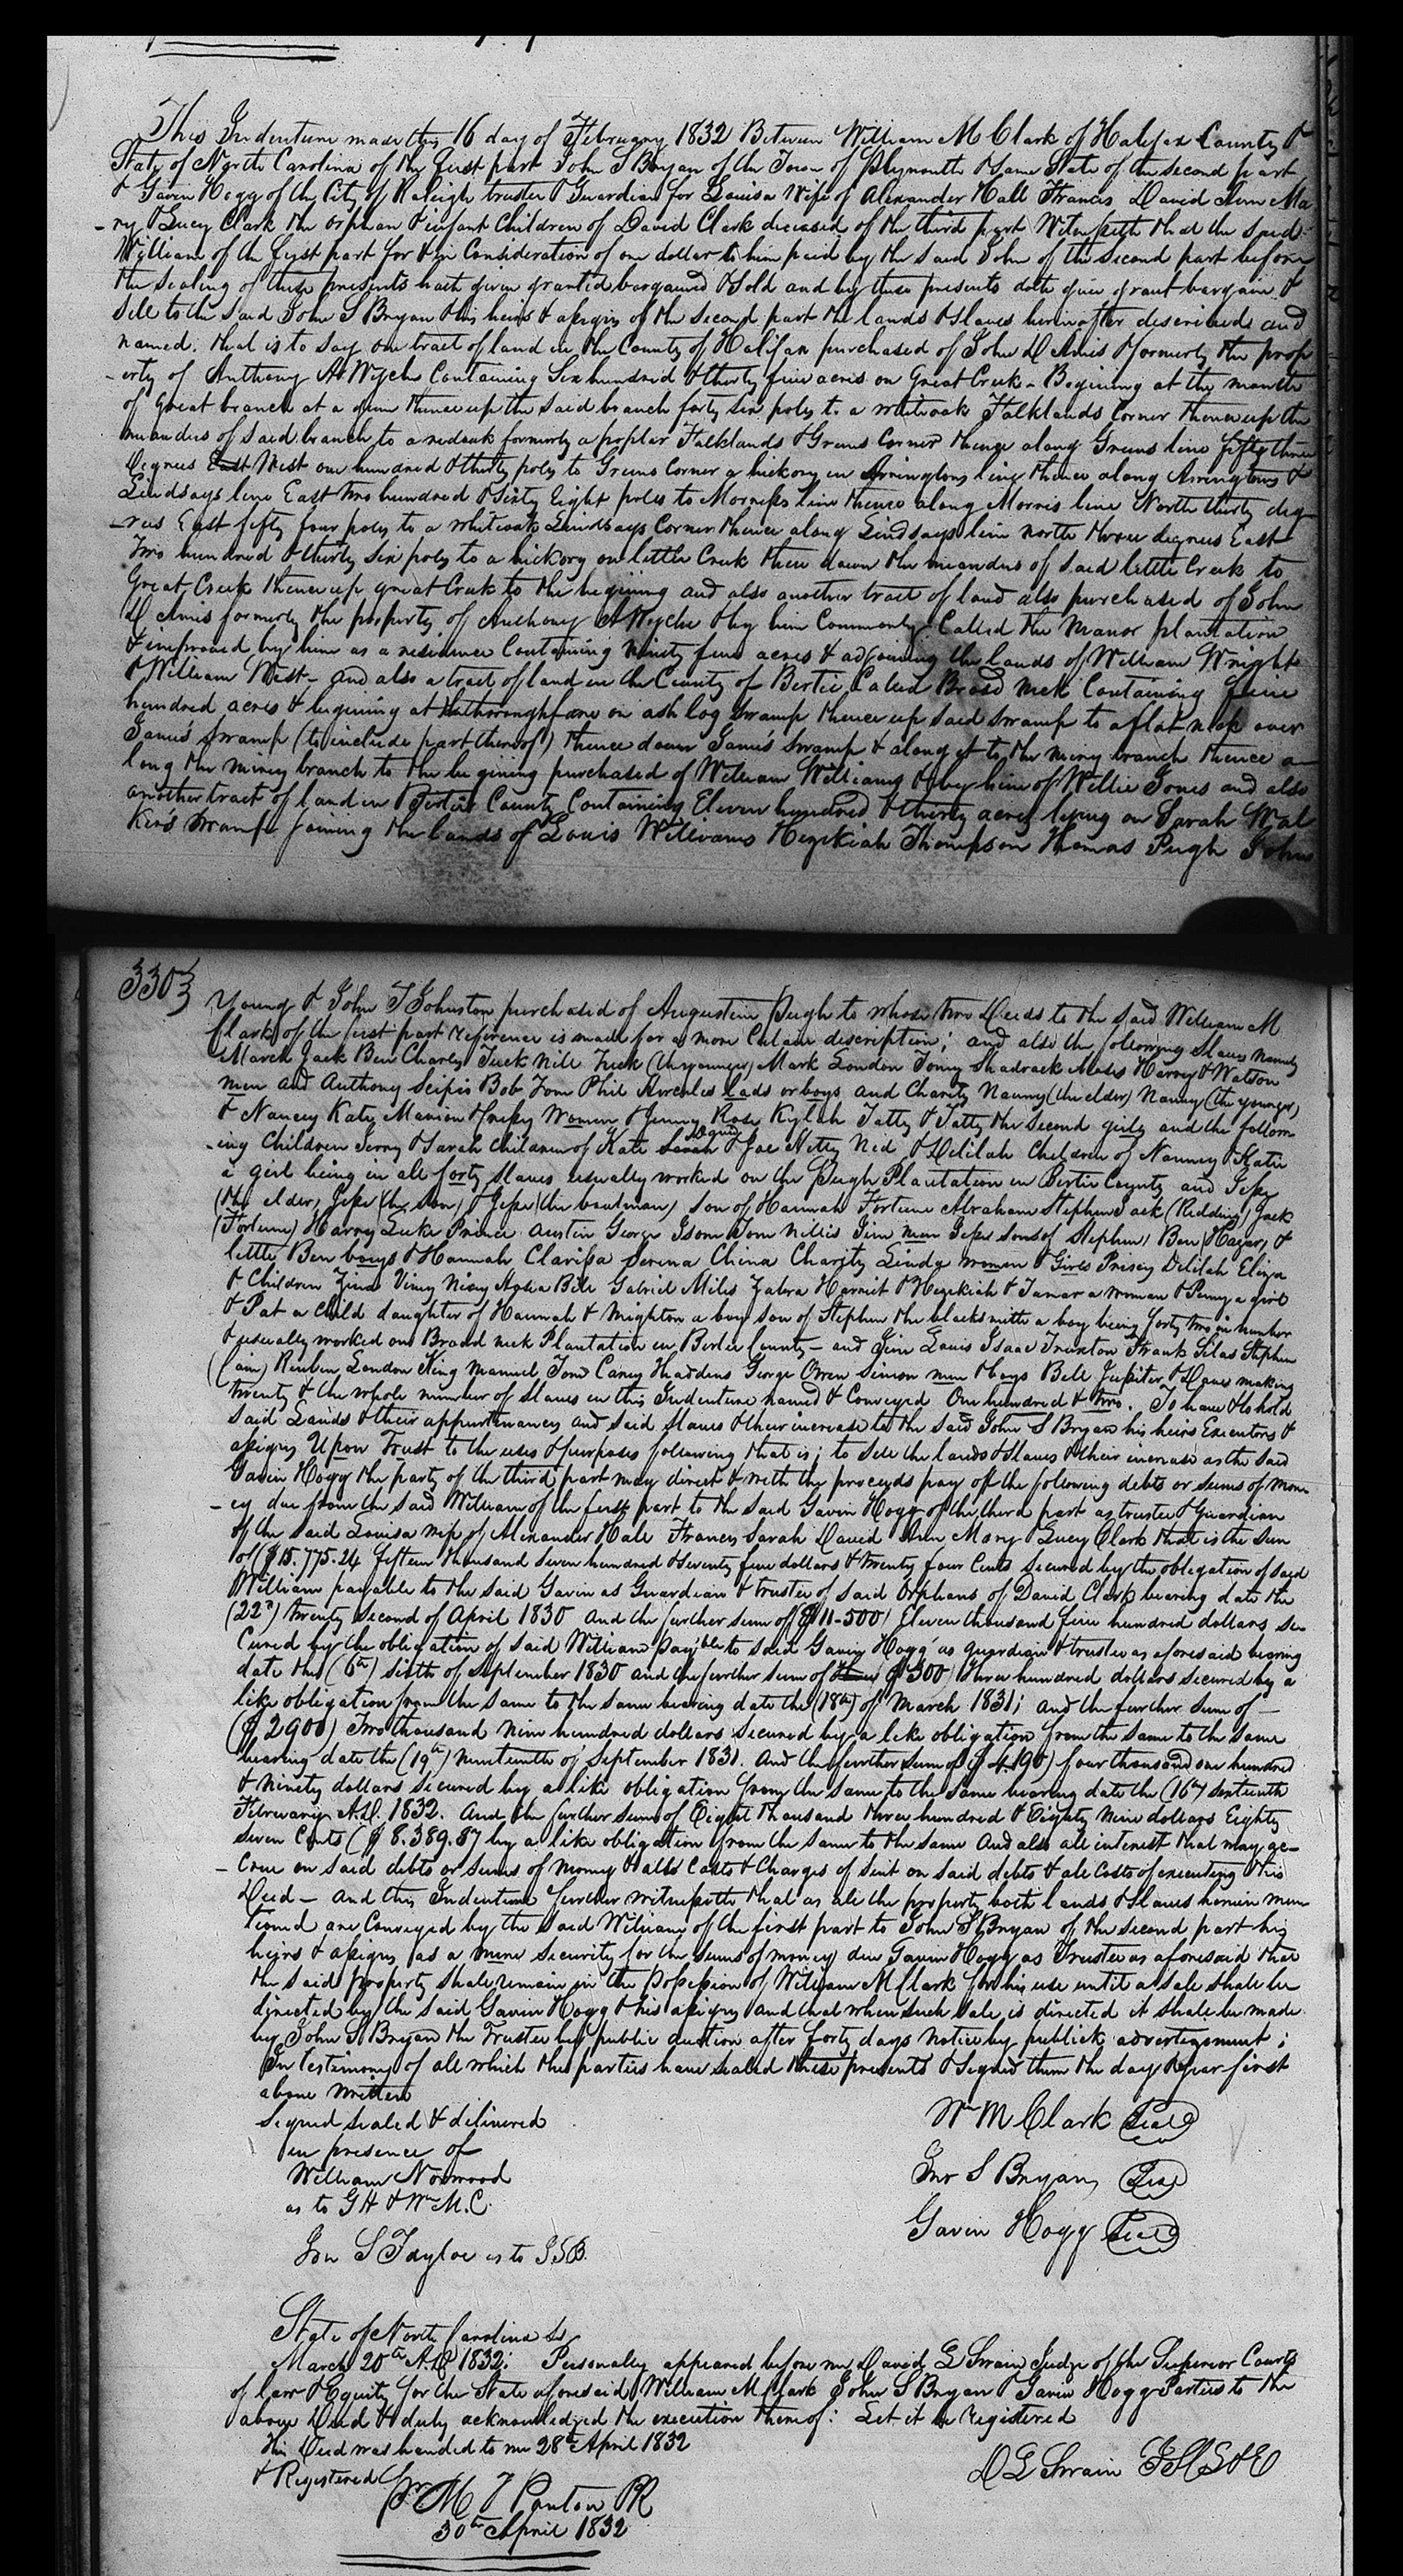 This Indenture made this 16 day of February 1832 Between William M Clark of Halifax County &
State of North Carolina of the first part John S Bryan of the Town of Plymouth & Same State of the second part
& Gavin Hogg of the City of Raleigh trustee & Guardian for Louisa Wife of Alexander Hall Francis David Ann Ma
-ry & Lucy Clark the orphan & infant Children of David Clark deceased of the third part Witnesseth that the said
William of the first part for & in Consideration of one dollar to him paid by the said John of the second part before
the sealing of these presents hath given granted bargained & Sold and by these presents doth give grant bargain &
Sell to the said John S Bryan & his heirs & assigns of the second part the lands & slaves hereinafter described and
named. that is to say one tract of land in the County of Halifax purchased of John D Amis & formerly the prop
-erty of Anthony A Wyche Containing Six hundred & thirty five acres on Great Creek - Begining at the mouth
of great branch at a gum thence up the said branch forty six poles to a white oak Falklands Corner thence up the
meanders of said branch to a red oak formerly a poplar Falklands & Greens Corner thence along Greens line fifty three
Degrees East West one hundred & thirty poles to Greens Corner a hickory in Arringtons line thence along Arringtons &
Lindsays line East two hundred & Sixty Eight poles to Morriss line thence along Morris line North thirty deg
-rees East fifty four poles to a white oak Lindsays Corner thence along Lindsays line north three degrees East
Two hundred & thirty six poles to a hickory on little Creek thence down the meanders of said little Creek to
Great Creek thence up great Creek to the begining and also another tract of land also purchased of John
D Amis formerly the property of Anthony A Wyche & by him Commonly Called the Manor plantation
& improved by him as a residence Containing Ninety five acres & adjoining the lands of William Wright
& William West - and also a tract of land in the County of Bertie Called Broad Neck Containing five
hundred acres & begining at thoroughfare on ash log Swamp thence up said swamp to a flat n over
Jamis swamp (to include part thereof) thence down Jamis swamp & along it to the miney branch thence a
long the miney branch to the begining purchased of William Williams & by him of Willie Jones and also
another tract of land in Bertie County Containing Eleven hundred & thirty acres lying on Sarah Wal
Kers Swamp joining the lands of Louis Williams Hezekiah Thompson Thomas Pugh John
330
Young & John T Johnston purchased of Augustin Pugh to whose two Deeds to the said William M
Clark of the first part reference is made for a more Certain description; and also the following Slaves namely
March Jack Ben Charles Tuck Nill Tuck (the younger) Mark London Tony Shadrack Moses Harvey & Watson
men and Anthony Scipio Bob Tom Phil Hercules lads or boys and Charity Nanny (the elder) Nanny (the younger)
& Nancy Katy Maria & women & Jenny Rose Kylah Tatty & Tatty the second girls and the follow
-ing Children Jerry & Sarah Children of Kate Sarah & Joe Hetty Ned & Delilah Children of Nanny & Katie
a girl being in all forty slaves usually worked on the Pugh Plantation in Bertie County and Jesse
(the elder) Jesse (the son) & Jesse (the boatman) son of Hannah Fortune Abraham Stephen Jack (Redding) Jack
(Fortune) Harry Luke Prince Austin George Isom Tom Willis Jim men Jesse son of Stephen, Ben (Hagar) &
little Ben boys & Hannah Clarissa Serena China Charity Lindy women & Girls Prissy Delilah Eliza
& Children Viney Nicey Bill Gabriel Miles Harriet & Hezekiah & Tamar a woman & Penny a girl
& Pat a Child daughter of Hannah & Mighton a boy son of Stephen the blacksmith a boy being forty two in number
& usually worked on Broad neck Plantation in Bertie County - and Jim Louis Isaac Truxton Frank Silas Stephen
(Cain) Reuben London King Manuel Tom Caney George Owen Simion men & boys Bill Jupiter & Dave making
twenty & the whole number of slaves in this Indenture named & Conveyed One hundred & two. To have & to hold
said Lands & their appurtenances and said slaves & their increase to the said John S Bryan his heirs Executors &
assigns Upon Trust to the uses & purposes following that is; to sell the lands & slaves & their increase as the said
Gavin Hogg the party of the third part may direct & with the proceeds pay off the following debts or sums of mon
-ey due from the said William of the first part to the said Gavin Hogg of the third part as trustee & Guardian
of the said Louisa wife of Alexander Hall Francis Sarah David Ann Mary & Lucy Clark that is the sum
of ($15.775.24 fifteen thousand seven hundred & seventy five dollars & twenty four Cents secured by the obligation of said
William payable to the said Gavin as Guardian & trustee of said Orphans of David Clark bearing date the
(22d) twenty second of April 1830 and the further sum of ($11-500) Eleven thousand five hundred dollars se-
cured by the obligation of said William payable to said Gavin Hogg as guardian & trustee as aforesaid bearing
date the (6th) sixth of September 1830 and the further sum of three ($300) three hundred dollars secured by a
like obligation from the same to the same bearing date the (18th) of March 1831; and the further sum of -
($2900) Two thousand nine hundred dollars secured by a like obligation from the same to the same
bearing date the (19th) nineteenth of September 1831. And the further sum of ($4190) four thousand one hundred
& ninety dollars secured by a like obligation from the same to the same bearing date the (16th) sixteenth
February A.D. 1832. And the further sum of Eight thousand three hundred & Eighty Nine dollars Eighty
seven Cents ($8.389.87 by a like obligation from the same to the same And also all interest that may ac-
-crue on said debts or sums of money & all Costs & Charges of suit on said debts & all Costs of executing this
Deed - and this Indenture further witnesseth that as all the property both lands & Slaves herein men
tioned are Conveyed by the said William of the first part to John S Bryan of the second part his
heirs & assigns as a mere security for the sums of money due Gavin Hogg as Trustee as aforesaid that
the said property shall remain in the possession of William M Clark for his use until a sale shall be
directed by the said Gavin Hogg & his assigns and that when such sale is directed it shall be made
by John S Bryan the Trustee by public auction after forty days notice by publick advertisement;
In Testimony of all which the parties have sealed these presents & signed them the day & year first
above written
Signed sealed & delivered
in presence of
William Norwood
as to GH & Wm M.C.
Jon S Tayloe as to J.S.B.
Wm M Clark Seal
Jno S Bryan Seal
Gavin Hogg Seal
State of North Carolina Ss
March 20th A.D. 1832: Personally appeared before me David L Swain Judge of the Superior Courts
of Law & Equity for the State aforesaid William M Clark John S Bryan & Gavin Hogg Parties to the
above Deed & duly acknowledged the execution thereof: Let it be registered
D L Swain J S C L & E
This Deed was handed to me 28th April 1832
& Registered
Jr. M J Ponton PR
30th April 1832